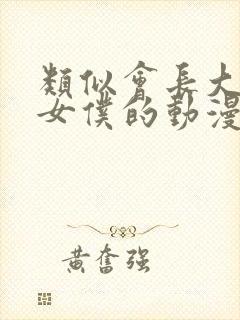 類似會長大
女僕的動漫
黃奮强